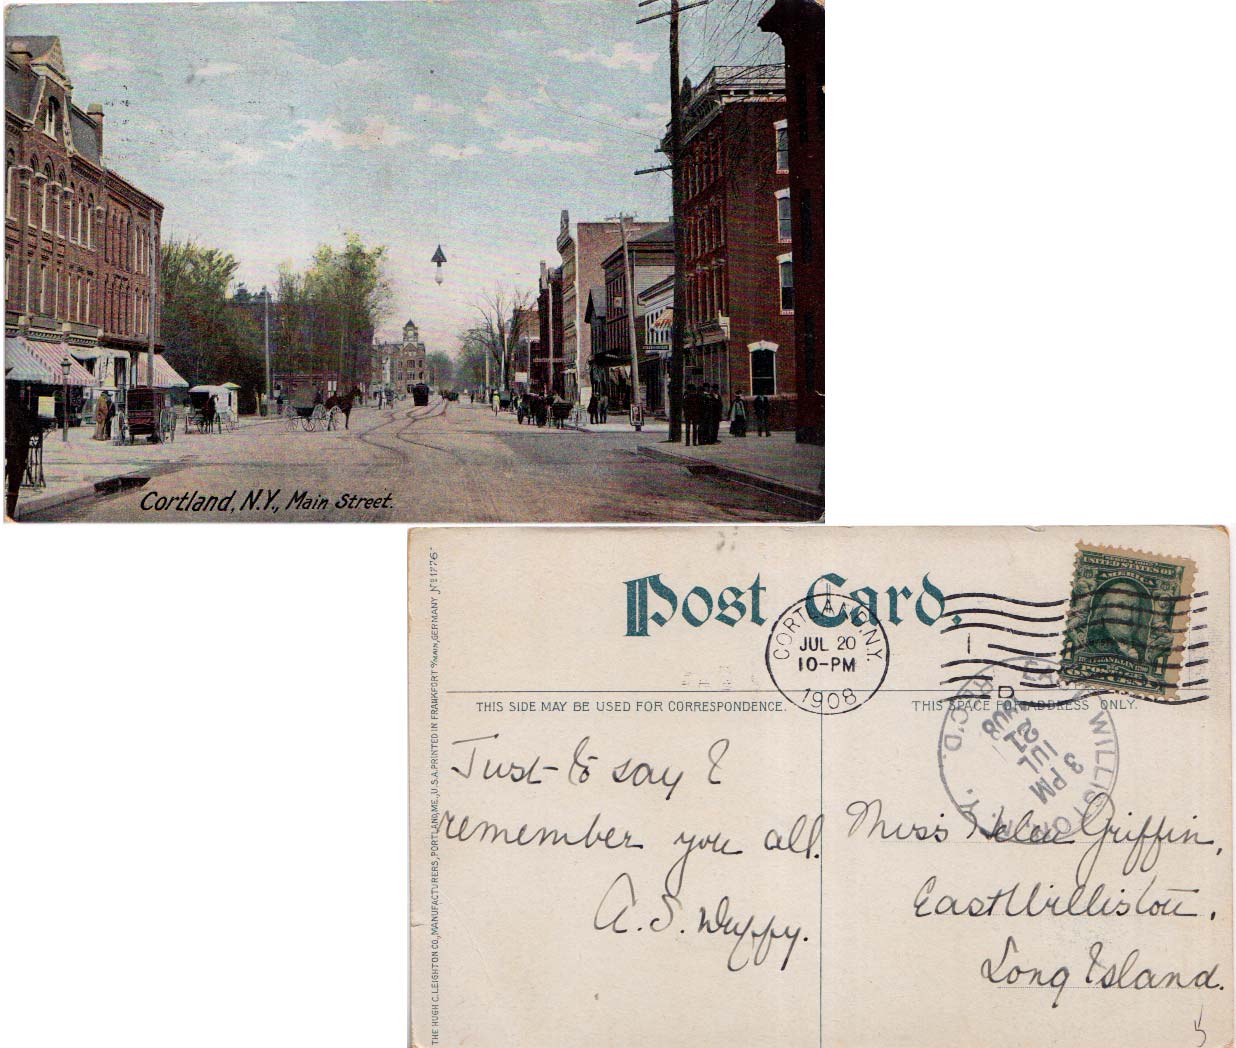 Cortland, N.Y., Main Street.
Post Card.
CORTLAND, N.Y.
JUL 20
10-PM
1908
1
D
UNITED STATES OF
AMERICA
THIS SIDE MAY BE USED FOR CORRESPONDENCE.
THIS SPACE FOR ADDRESS ONLY.
WILLISTON, N.Y.
REC'D.
3 PM
JUL
21
1908
Just to say I
remember you all.
A. S. Duffy.
Miss Helen Griffin,
East Williston,
Long Island.
THE HUGH C. LEIGHTON CO., MANUFACTURERS, PORTLAND, ME., U.S.A. PRINTED IN FRANKFORT o/MAIN, GERMANY No 1776